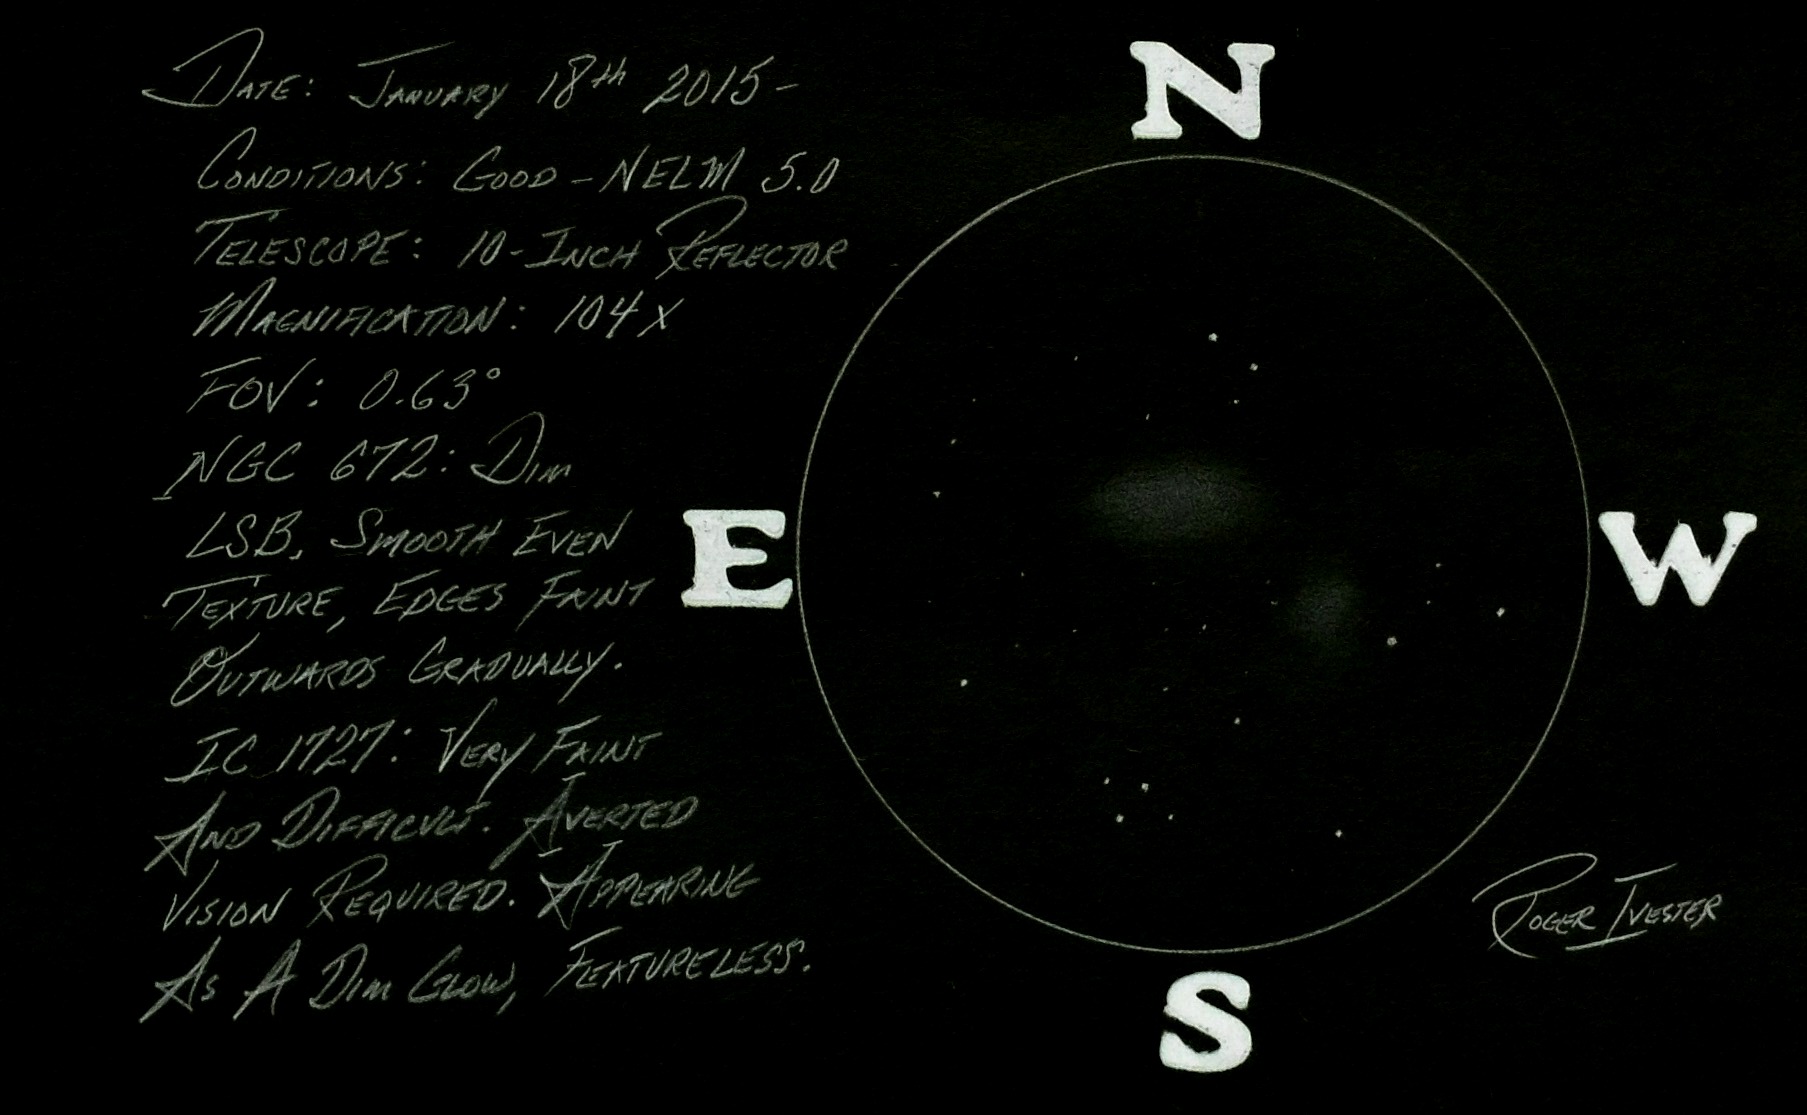 DATE: JANUARY 18th 2015-
CONDITIONS: GOOD - NELM 5.0
TELESCOPE: 10-INCH REFLECTOR
MAGNIFICATION: 104X
FOV: 0.63°
NGC 672: DIM
LSB, SMOOTH EVEN
TEXTURE, EDGES FAINT
OUTWARDS GRADUALLY.
IC 1727: VERY FAINT
AND DIFFICULT. AVERTED
VISION REQUIRED. APPEARING
AS A DIM GLOW, FEATURELESS.
N
E
W
S
ROGER IVESTER